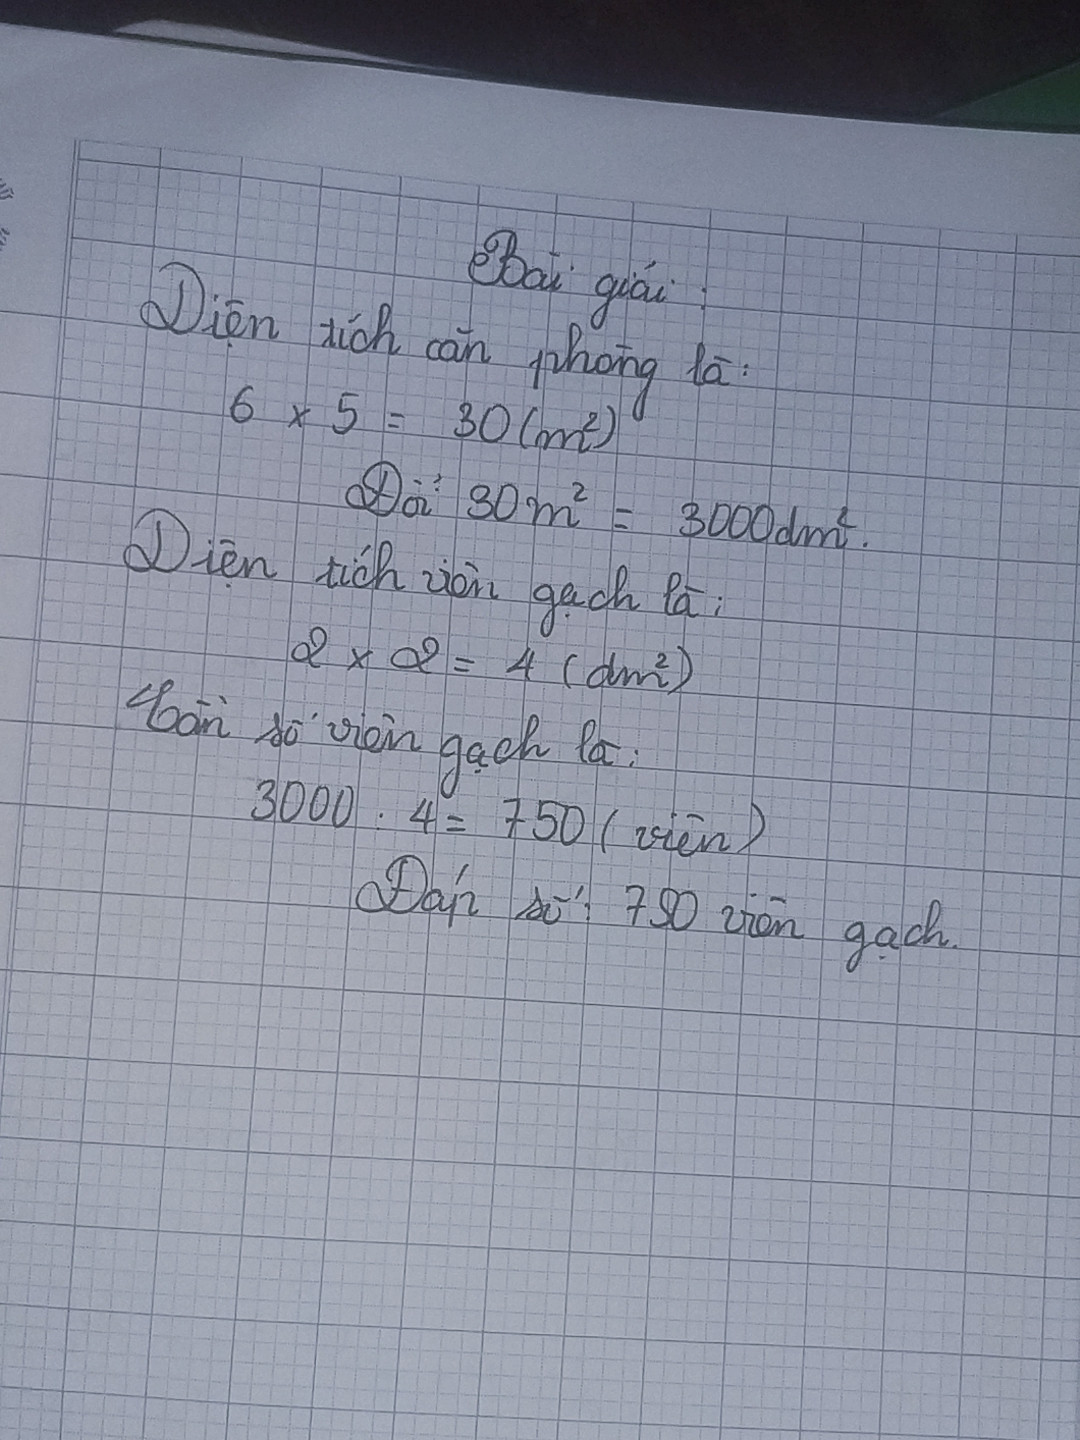 Bài giải:
Diện tích căn phòng là:
6 x 5 = 30 (m²)
Đổi 30m² = 3000dm².
Diện tích viên gạch là:
2 x 2 = 4 (dm²)
Cần số viên gạch là:
3000 : 4 = 750 (viên)
Đáp số: 750 viên gạch.